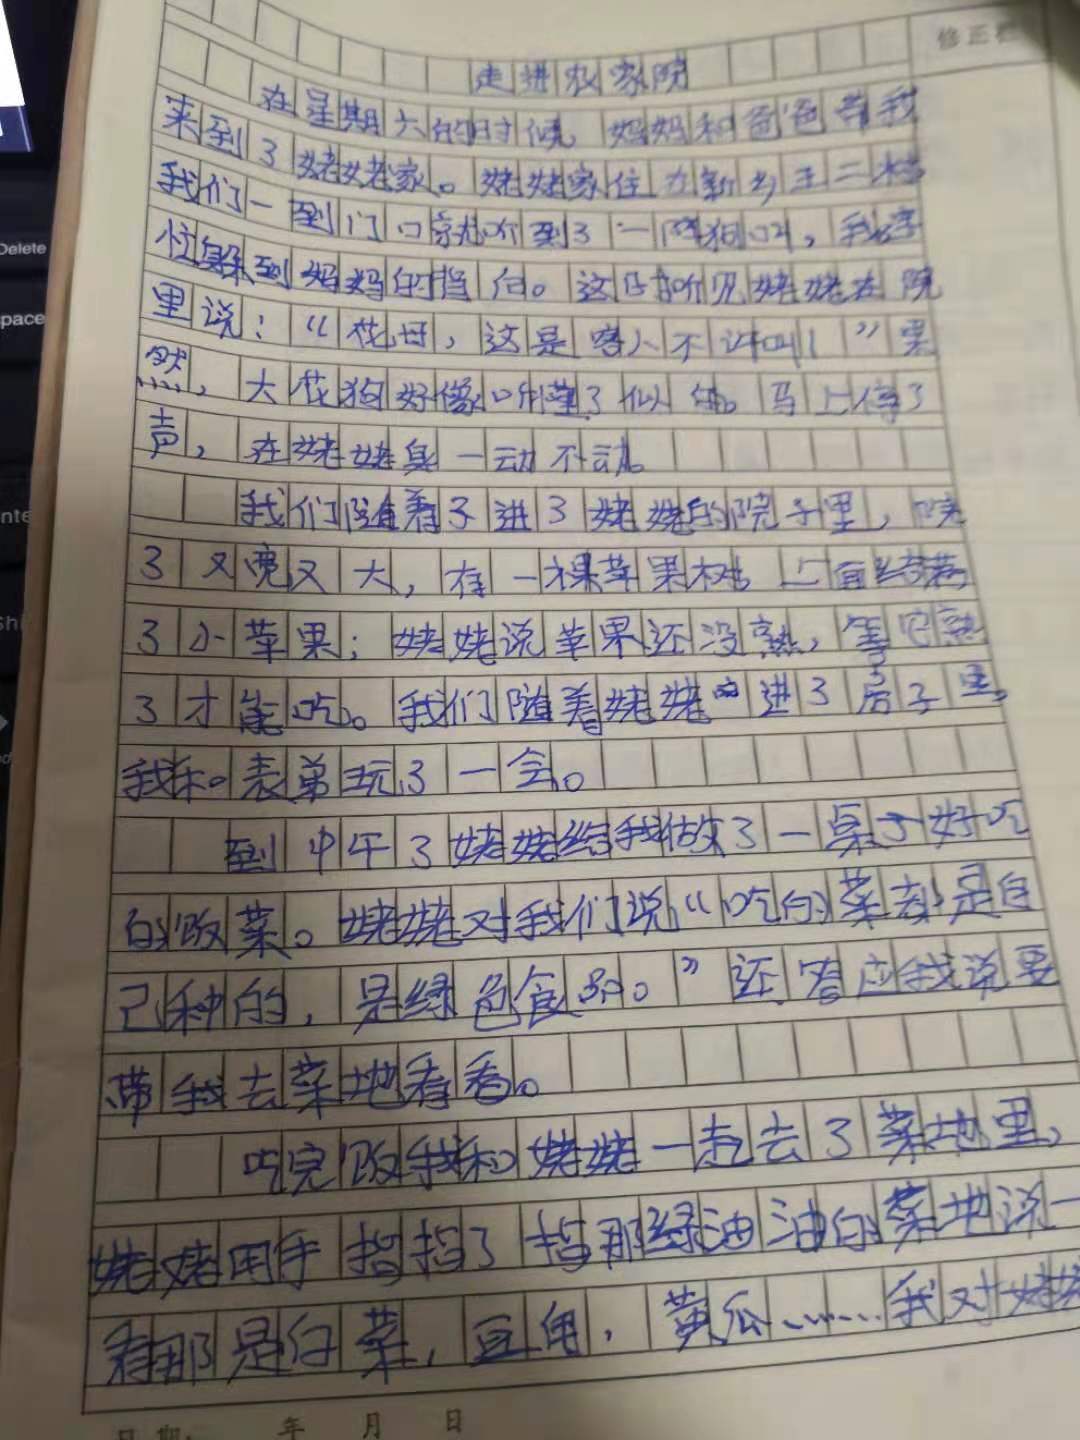 修正栏
走进农家院
在星期六的时候，妈妈和爸爸带我
来到了姥姥家。姥姥家住在新乡王二楼
我们一到门口就听到了一阵狗叫，我
忙躲到妈妈的挡后。这只听见姥姥在院
里说：“花母，这是客人不许叫！”果
然，大花狗好像听懂了似的。马上停了
声，在姥姥身一动不动。
我们随着了进了姥姥的院子里，院
了又宽又大，有一棵苹果树上面结满
了小苹果；姥姥说苹果还没熟，等它熟
了才能吃。我们随着姥姥进了房子里。
我和表弟玩了一会。
到中午了姥姥给我做了一桌子好吃
的饭菜。姥姥对我们说“吃的菜都是自
己种的，是绿色食品。”还答应我说要
带我去菜地看看。
吃完饭我和姥姥一起去了菜地里，
姥姥用手指指了指那绿油油的菜地说一
看那是白菜，豆角，黄瓜……我对姥姥
日期： 年 月 日
Delete